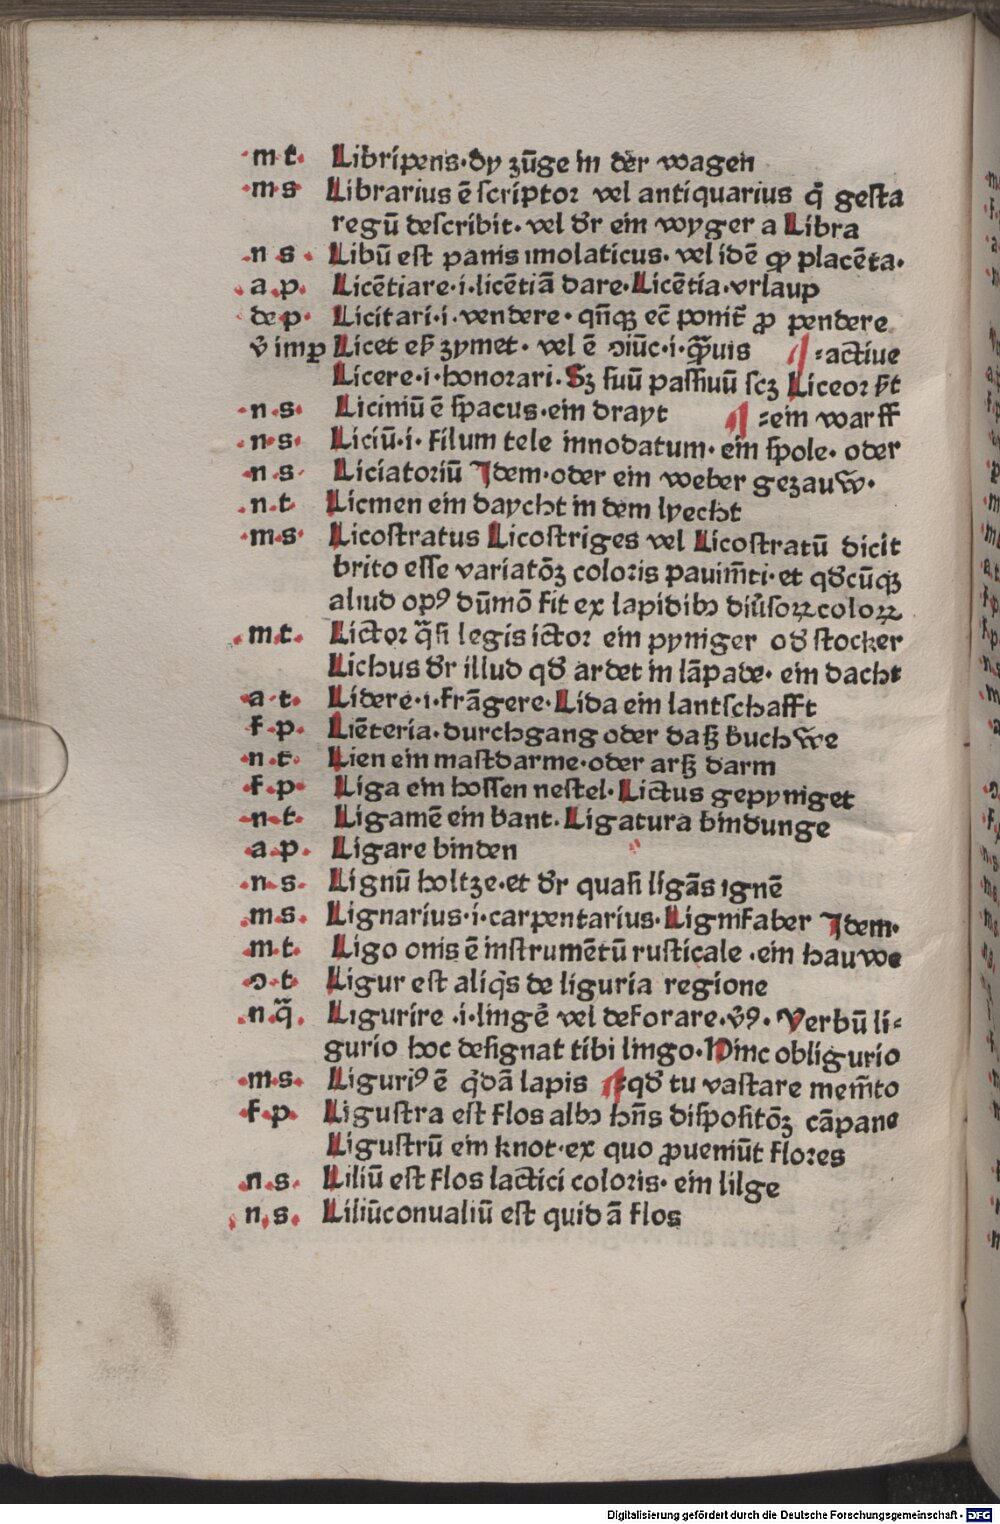 m t. Libripens·dy zūge in der wagen
m·s Librarius ē ſcriptor vel antiquarius q̄ geſta
regū deſcribit·vel dr̄ ein wyger a Libra
n s· Libū eſt panis imolaticus·vel idē qƺ placēta·
a p. Licētiare·i·licētiā dare·Licētia·vrlaup
de p· Licitari·i·vendere·qn̄qꝫ ec̄ ponit̄ ꝓ pendere
v̄ imp Licet eſt zymet·vel ē ↄiūc·i·qᷓuis ⸗actiue
Licere·i·honorari·Sꝫ ſuū paſſiuū ſcꝫ Liceor
n·s· Liciniū ē ſpacus·ein drayt ⸗ein warff
n·s· Liciū·i·filum tele innodatum·ein ſpole·oder
n s· Liciatoriū Idem·oder ein weber gezauw̄·
n·t· Licmen ein daycht in dem lyecht
m·s· Licoſtratus Licoſtriges vel Licoſtratū dicit
brito eſſe variatōꝫ coloris pauim̄ti·et qd̄cūqꝫ
aliud opꝰ dūmō fit ex lapidibꝫ diūſoꝝ coloꝝ
m·t· Lictor q̄ſi legis ictor ein pyniger od̄ ſtocker
Lichus dr̄ illud qd̄ ardet in lāpade·ein dacht
a·t· Lidere·i·frāgere·Lida ein lantſchafft
f·p· Liēteria·durchgang oder daß buchw̄e
n·t· Lien ein maſtdarme·oder arß darm
f·p· Liga ein hoſſen neſtel·Lictus gepyniget
n·t· Ligamē ein bant·Ligatura bindunge
a p· Ligare binden
n·s· Lignū holtze·et dr̄ quaſi ligās ignē
m·s· Lignarius·i·carpentarius·Lignifaber Idem·
m·t· Ligo onis ē inſtrumētū ruſticale·ein hauwe
ↄ·t· Ligur eſt aliqͥs de liguria regione
n·q̄ Ligurire·i·lingē vel deforare·v̄ꝰ·Verbū li⸗
gurio hoc deſignat tibi lingo·Hinc obligurio
m·s· Liguriꝰ ē qͥdā lapis qd̄ tu vaſtare mem̄to
f·p· Liguſtra eſt flos albꝫ hn̄s diſpoſitōꝫ cāpane
Liguſtrū ein knot·ex quo ꝓueniūt flores
n·s· Liliū eſt flos lactici coloris·ein lilge
n·s· Liliūconualiū eſt quidā flos
Digitalisierung gefördert durch die Deutsche Forschungsgemeinschaft - DFG